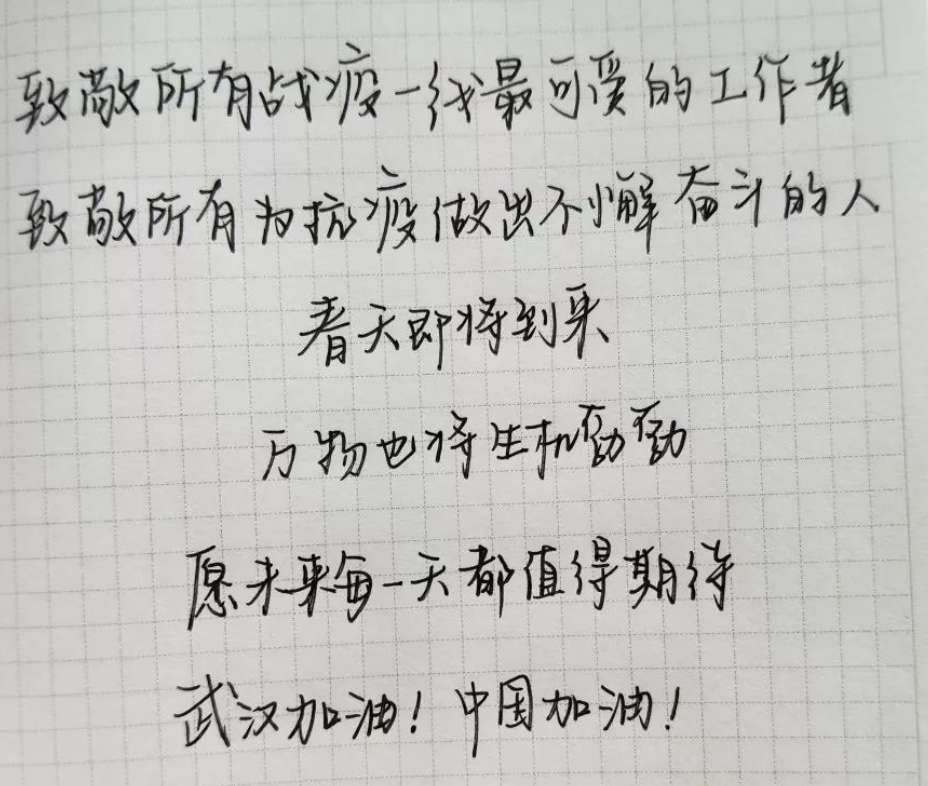 致敬所有战疫一线最可爱的工作者
致敬所有为抗疫做出不懈奋斗的人
春天即将到来
万物也将生机勃勃
愿未来每一天都值得期待
武汉加油！中国加油！